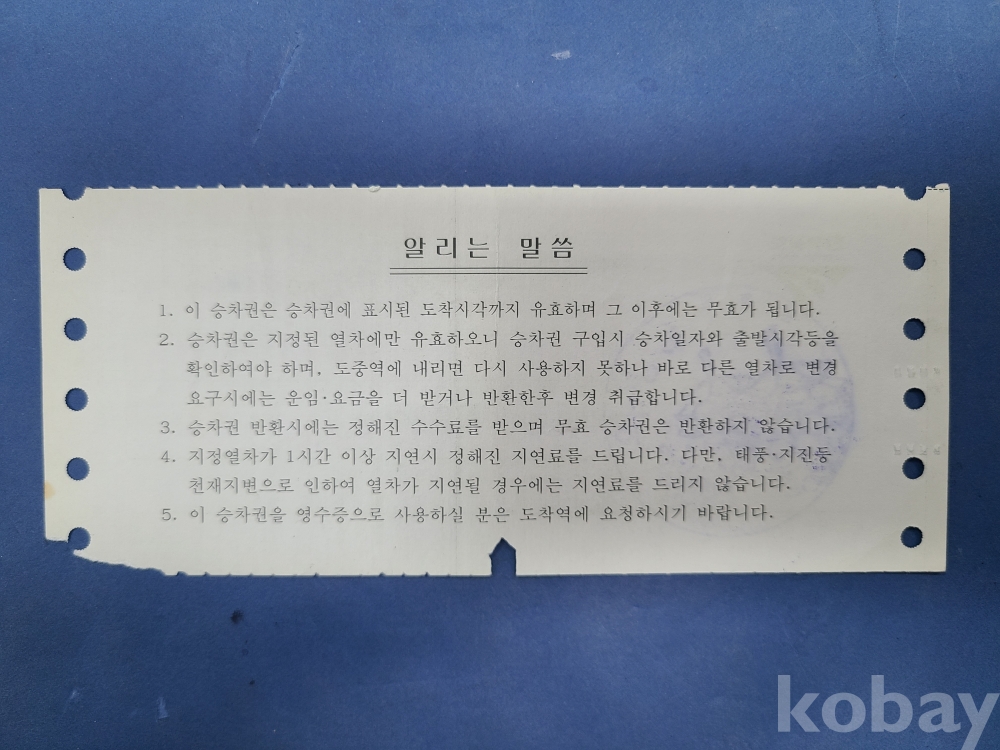 알리는 말씀
1. 이 승차권은 승차권에 표시된 도착시각까지 유효하며 그 이후에는 무효가 됩니다.
2. 승차권은 지정된 열차에만 유효하오니 승차권 구입시 승차일자와 출발시각등을
확인하여야 하며, 도중역에 내리면 다시 사용하지 못하나 바로 다른 열차로 변경
요구시에는 운임·요금을 더 받거나 반환한후 변경 취급합니다.
3. 승차권 반환시에는 정해진 수수료를 받으며 무효 승차권은 반환하지 않습니다.
4. 지정열차가 1시간 이상 지연시 정해진 지연료를 드립니다. 다만, 태풍·지진등
천재지변으로 인하여 열차가 지연될 경우에는 지연료를 드리지 않습니다.
5. 이 승차권을 영수증으로 사용하실 분은 도착역에 요청하시기 바랍니다.
kobay